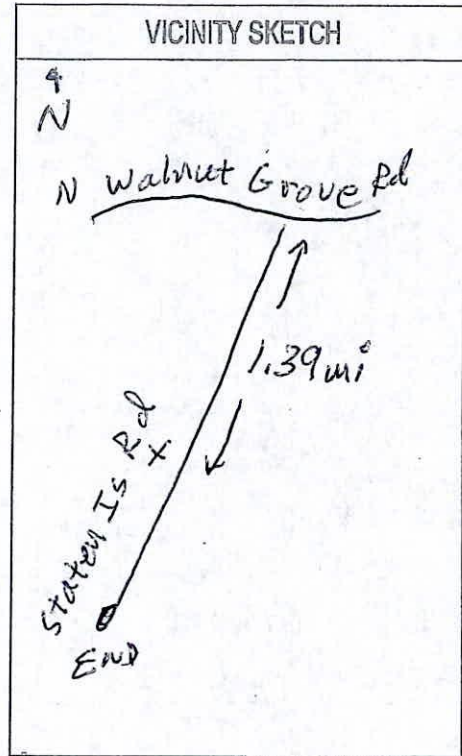 VICINITY SKETCH
N
N Walnut Grove Rd
1.39 mi
Staten Is Rd
x
END